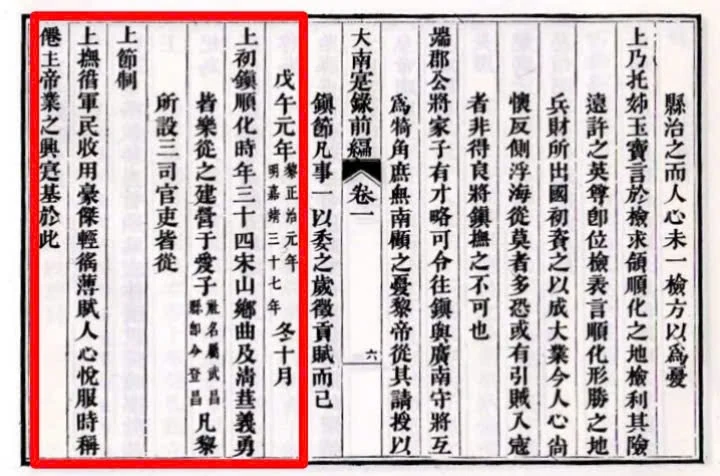 縣治之而人心未一檢方以爲憂
上乃托姊玉寶言於檢求領順化之地檢利其險
遠許之英尊卽位檢表言順化形勝之地
兵財所出國初資之以成大業今人心尚
懷反側浮海從莫者多恐或有引賊入寇
者非得良將鎮撫之不可也
端郡公將家子有才略可令往鎮與廣南守將互
爲犄角庶無南顧之憂黎帝從其請授以
大南寔錄前編 卷一 六
鎮節凡事一以委之歲徵貢賦而已
戊午元年 黎正治元年 明嘉靖三十七年 冬十月
上初鎮順化時年三十四宋山鄉曲及淸華義勇
皆樂從之建營于愛子 社名屬武昌 縣卽今登昌 凡黎
所設三司官吏皆從
上節制
上撫循軍民收用豪傑輕徭薄賦人心悅服時稱
僊主帝業之興寔基於此